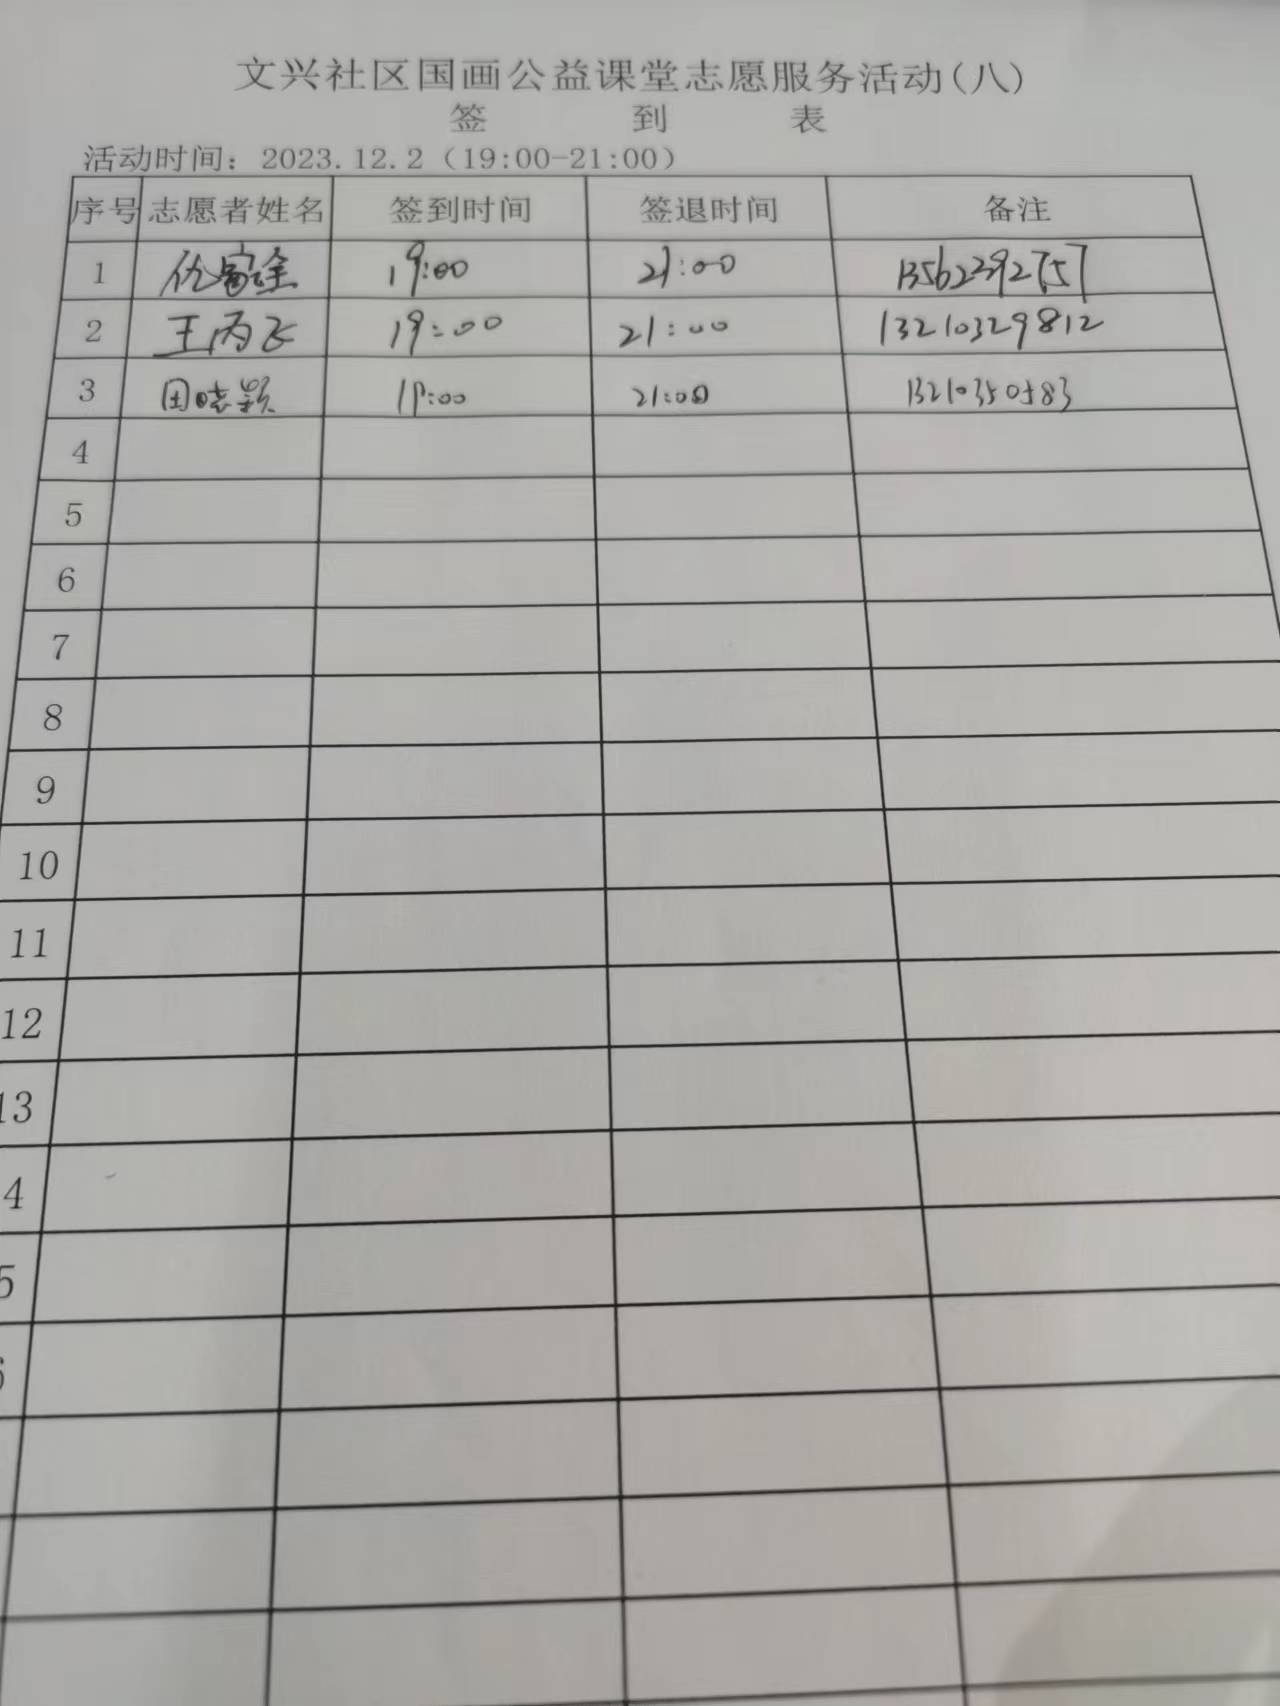 文兴社区国画公益课堂志愿服务活动(八)
签 到 表
活动时间：2023.12.2（19:00-21:00）
序号 志愿者姓名 签到时间 签退时间 备注
1 仇富 19:00 21:00 13562392757
2 王丙飞 19:00 21:00 13210329812
3 田晓颖 19:00 21:00 13210350583
4
5
6
7
8
9
10
11
12
13
4
5